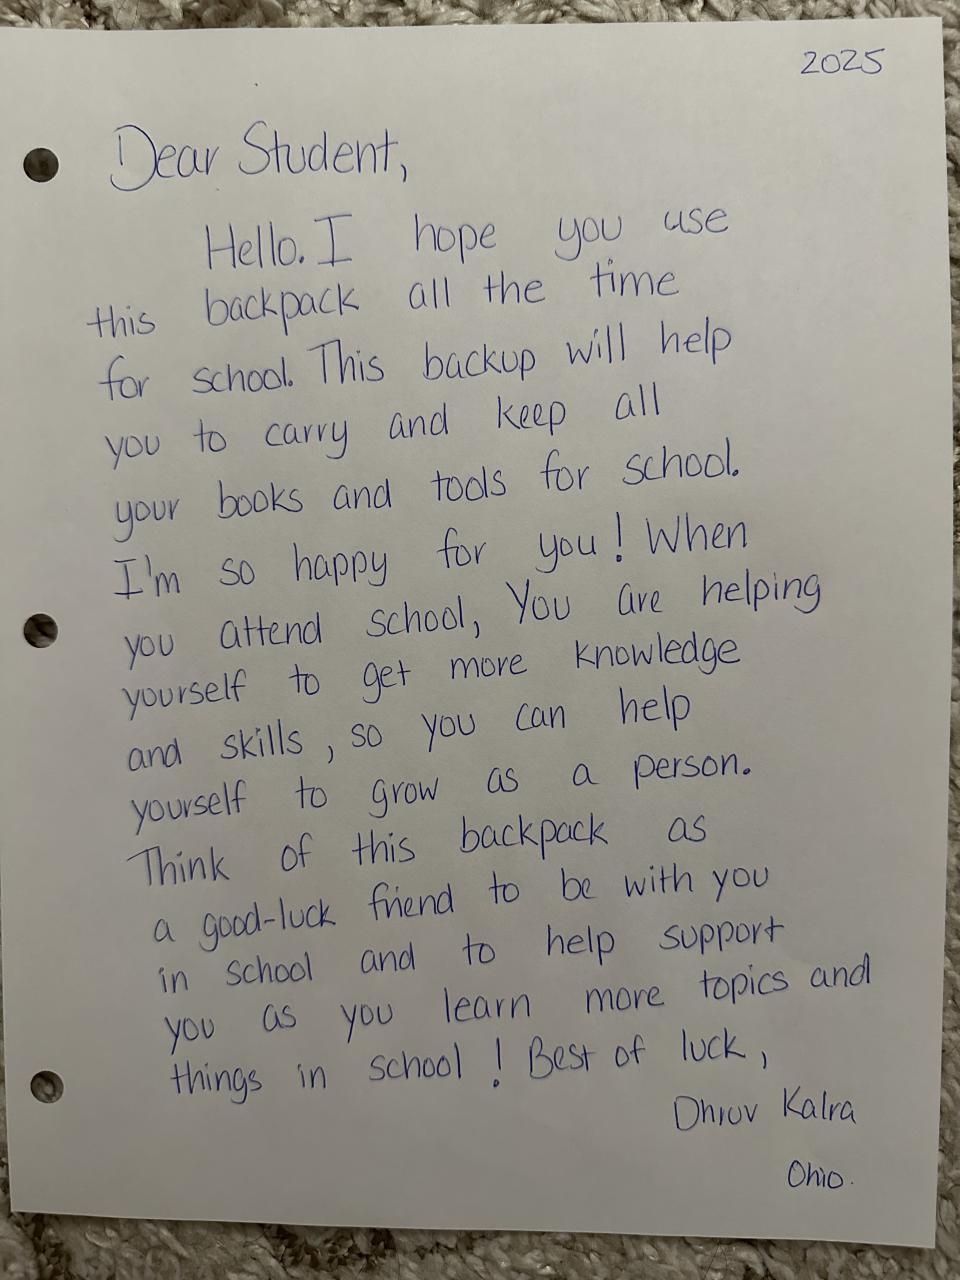 2025
Dear Student,
Hello. I hope you use
this backpack all the time
for school. This backup will help
you to carry and keep all
your books and tools for school.
I'm so happy for you! When
you attend school, You are helping
yourself to get more knowledge
and skills, so you can help
yourself to grow as a person.
Think of this backpack as
a good-luck friend to be with you
in school and to help support
you as you learn more topics and
things in school! Best of luck,
Dhruv Kalra
Ohio.